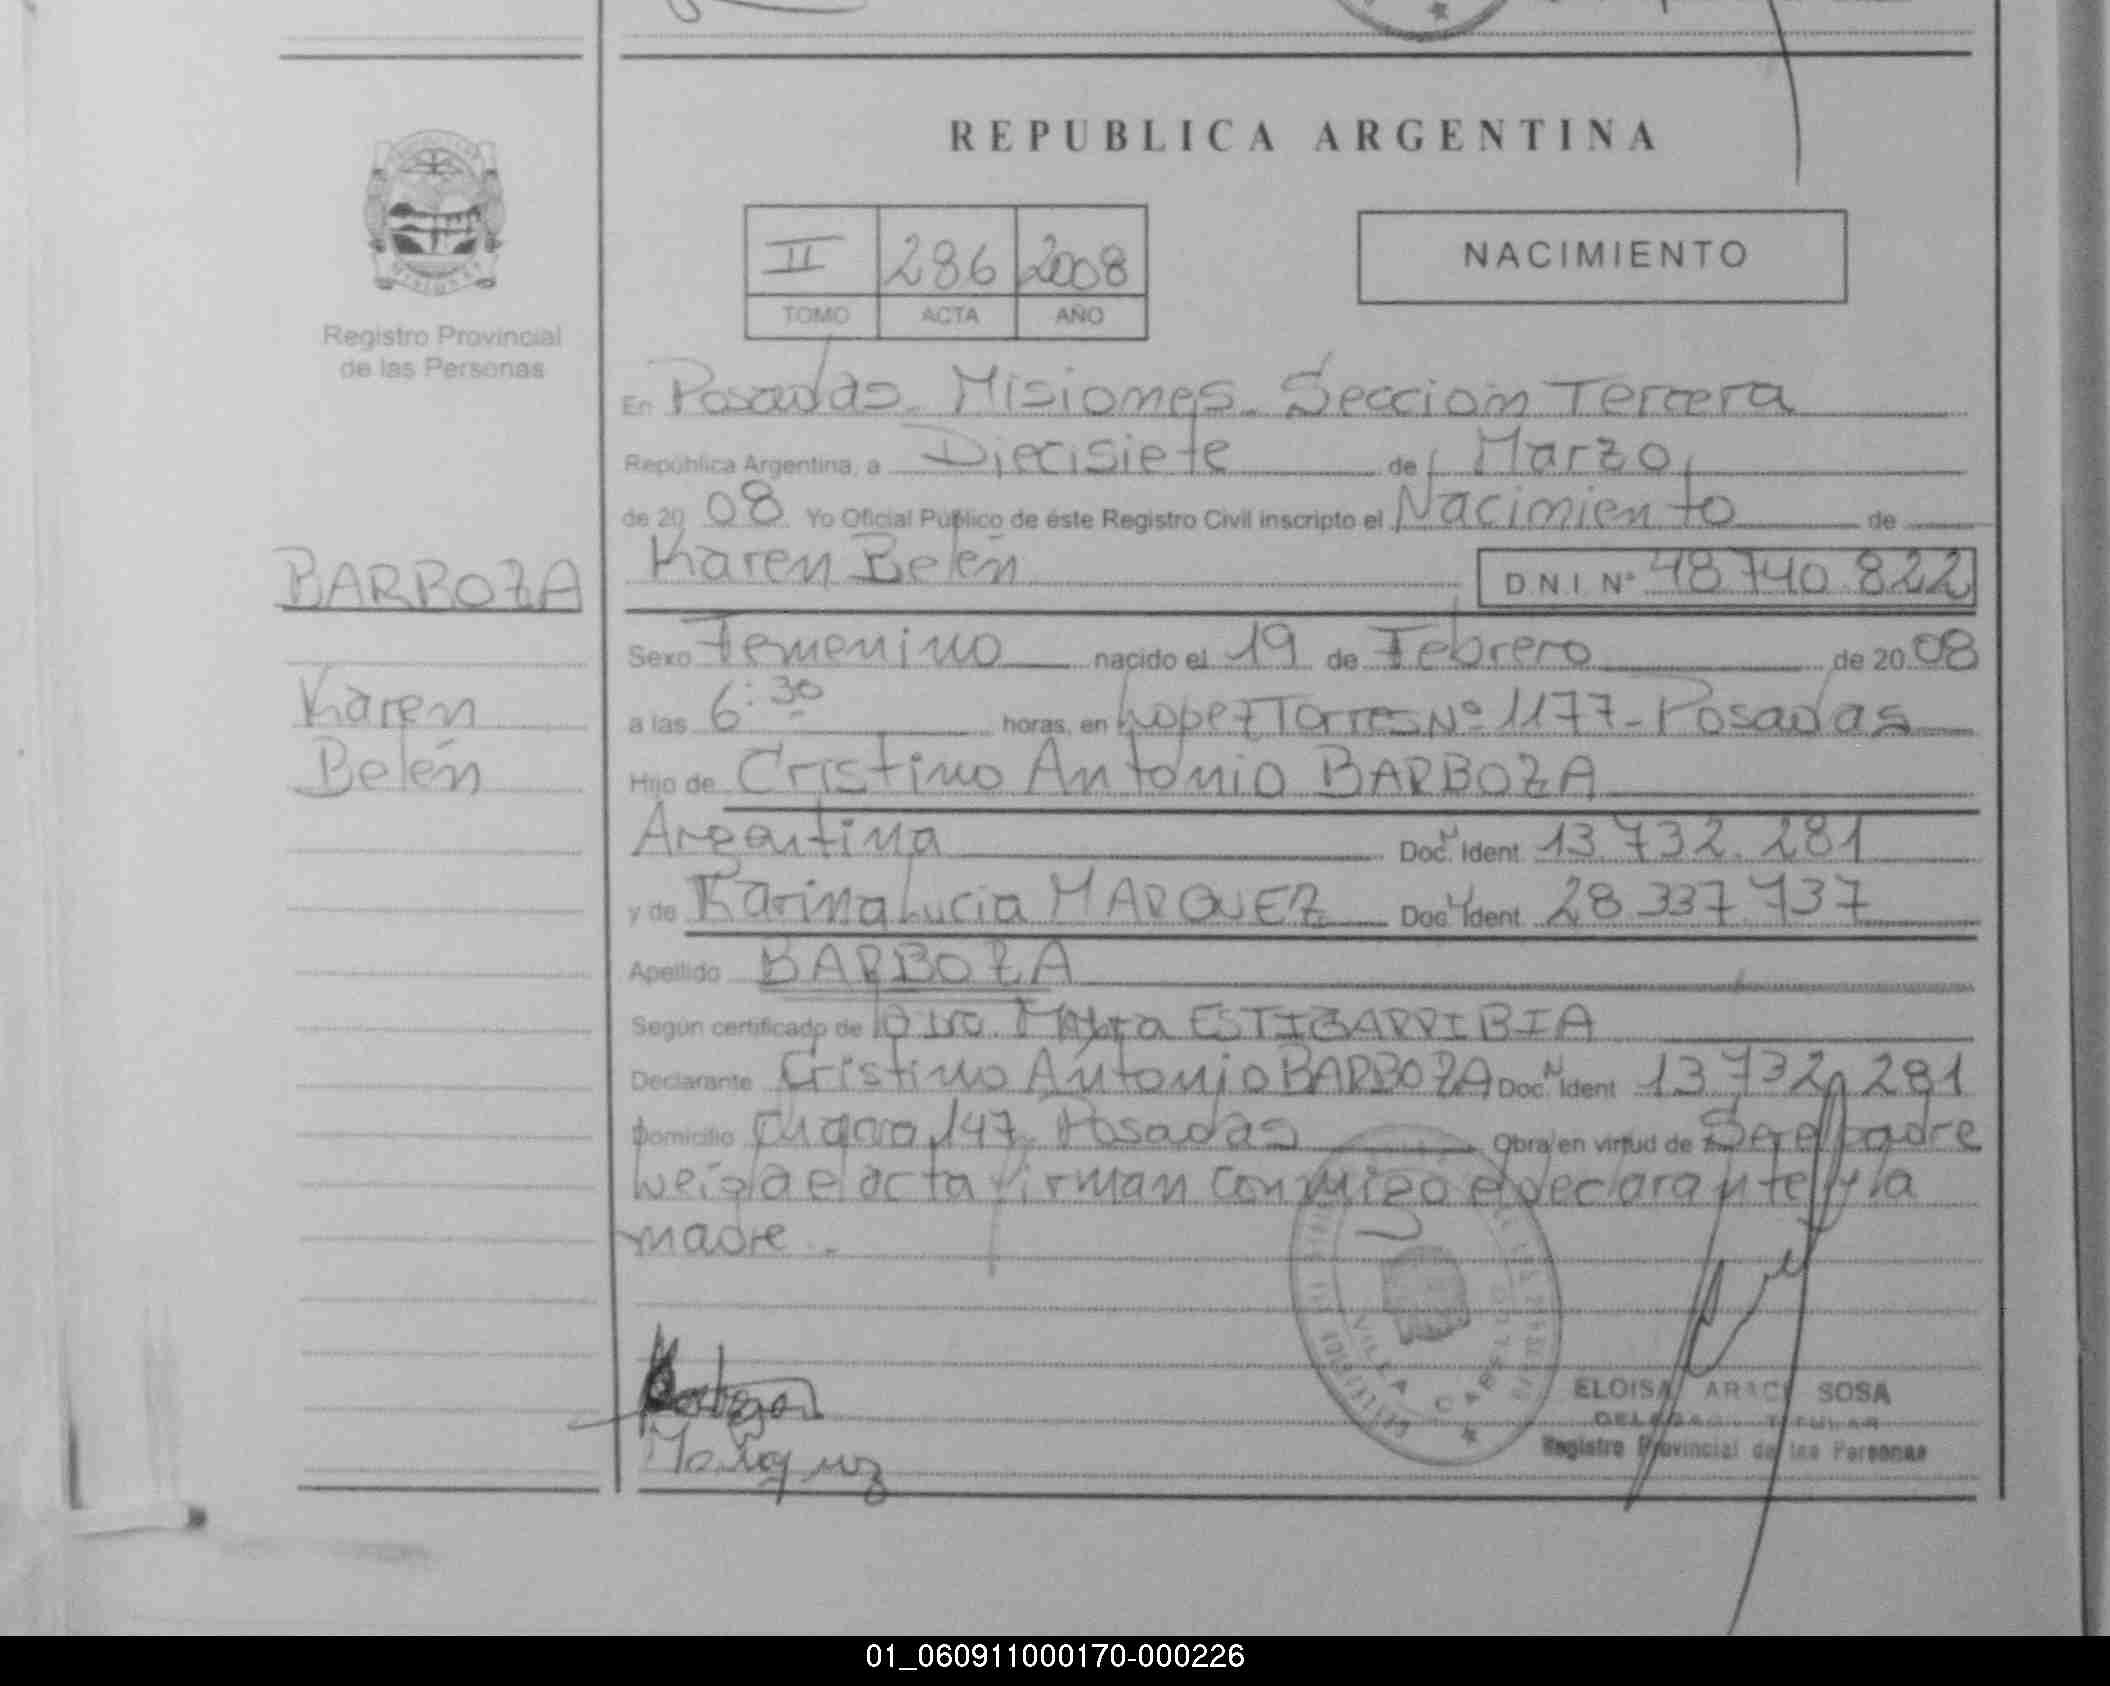 REPUBLICA ARGENTINA
II 286 2008
TOMO ACTA AÑO
NACIMIENTO
Registro Provincial
de las Personas
BARBOZA
Karen
Belén
En Posadas. Misiones. Seccion Tercera
República Argentina, a Diecisiete de Marzo
de 2008 Yo Oficial Público de éste Registro Civil inscripto el Nacimiento de
Karen Belén D.N.I. Nº 48.740.822
Sexo Femenino nacido el 19 de Febrero de 2008
a las 6:30 horas, en Lopez Torres Nº 1177-Posadas
Hijo de Cristino Antonio BARBOZA
Argentina Doc. Ident. 13.732.281
y de Karina Lucia MARQUEZ Doc. Ident. 28.337.737
Apellido BARBOZA
Según certificado de ESTIGARRIBIA
Declarante Cristino Antonio BARBOZA Doc. Ident. 13.732.281
Domicilio Chacra 147. Posadas Obra en virtud de Ser el padre
Leída el acta firman conmigo el declarante y la
madre.
Marquez
VILLA CABELLO
ELOISA ARACI SOSA
DELEGADA TITULAR
Registro Provincial de las Personas
01_060911000170-000226